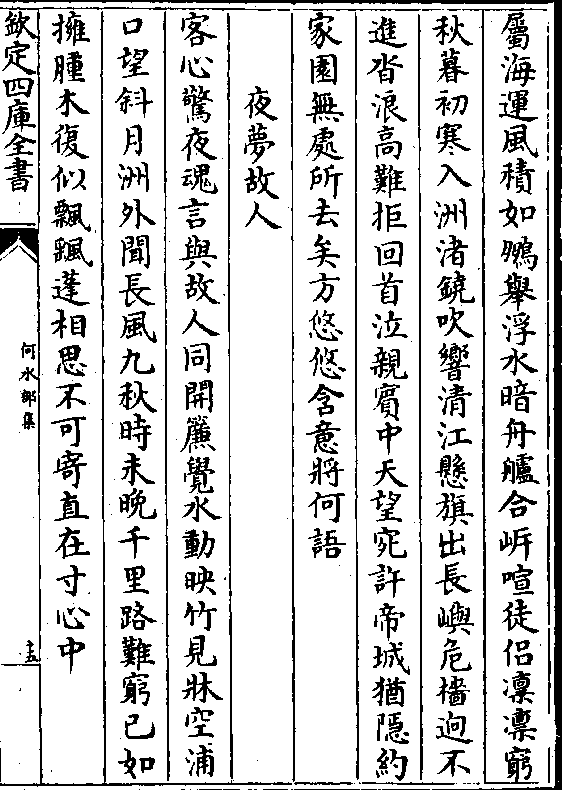 屬海運風積如鵷舉浮水暗舟艫合岍喧徒侶凛凛窮
秋暮初寒入洲渚鐃吹響清江懸旗出長嶼危檣逈不
進沓浪高難拒回首泣親賓中天望宛許帝城猶隱約
家園無處所去矣方悠悠含意將何語
夜夢故人
客心驚夜魂言與故人同開簾覺水動映竹見牀空浦
口望斜月洲外聞長風九秋時未晚千里路難窮已如
擁腫木復似飄颻蓬相思不可寄直在寸心中
欽定四庫全書
何水部集
十五